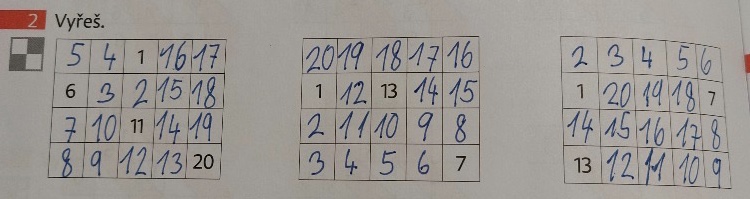 2 Vyřeš.
5 4 1 16 17
6 3 2 15 18
7 10 11 14 19
8 9 12 13 20
20 19 18 17 16
1 12 13 14 15
2 11 10 9 8
3 4 5 6 7
2 3 4 5 6
1 20 19 18 7
14 15 16 17 8
13 12 11 10 9